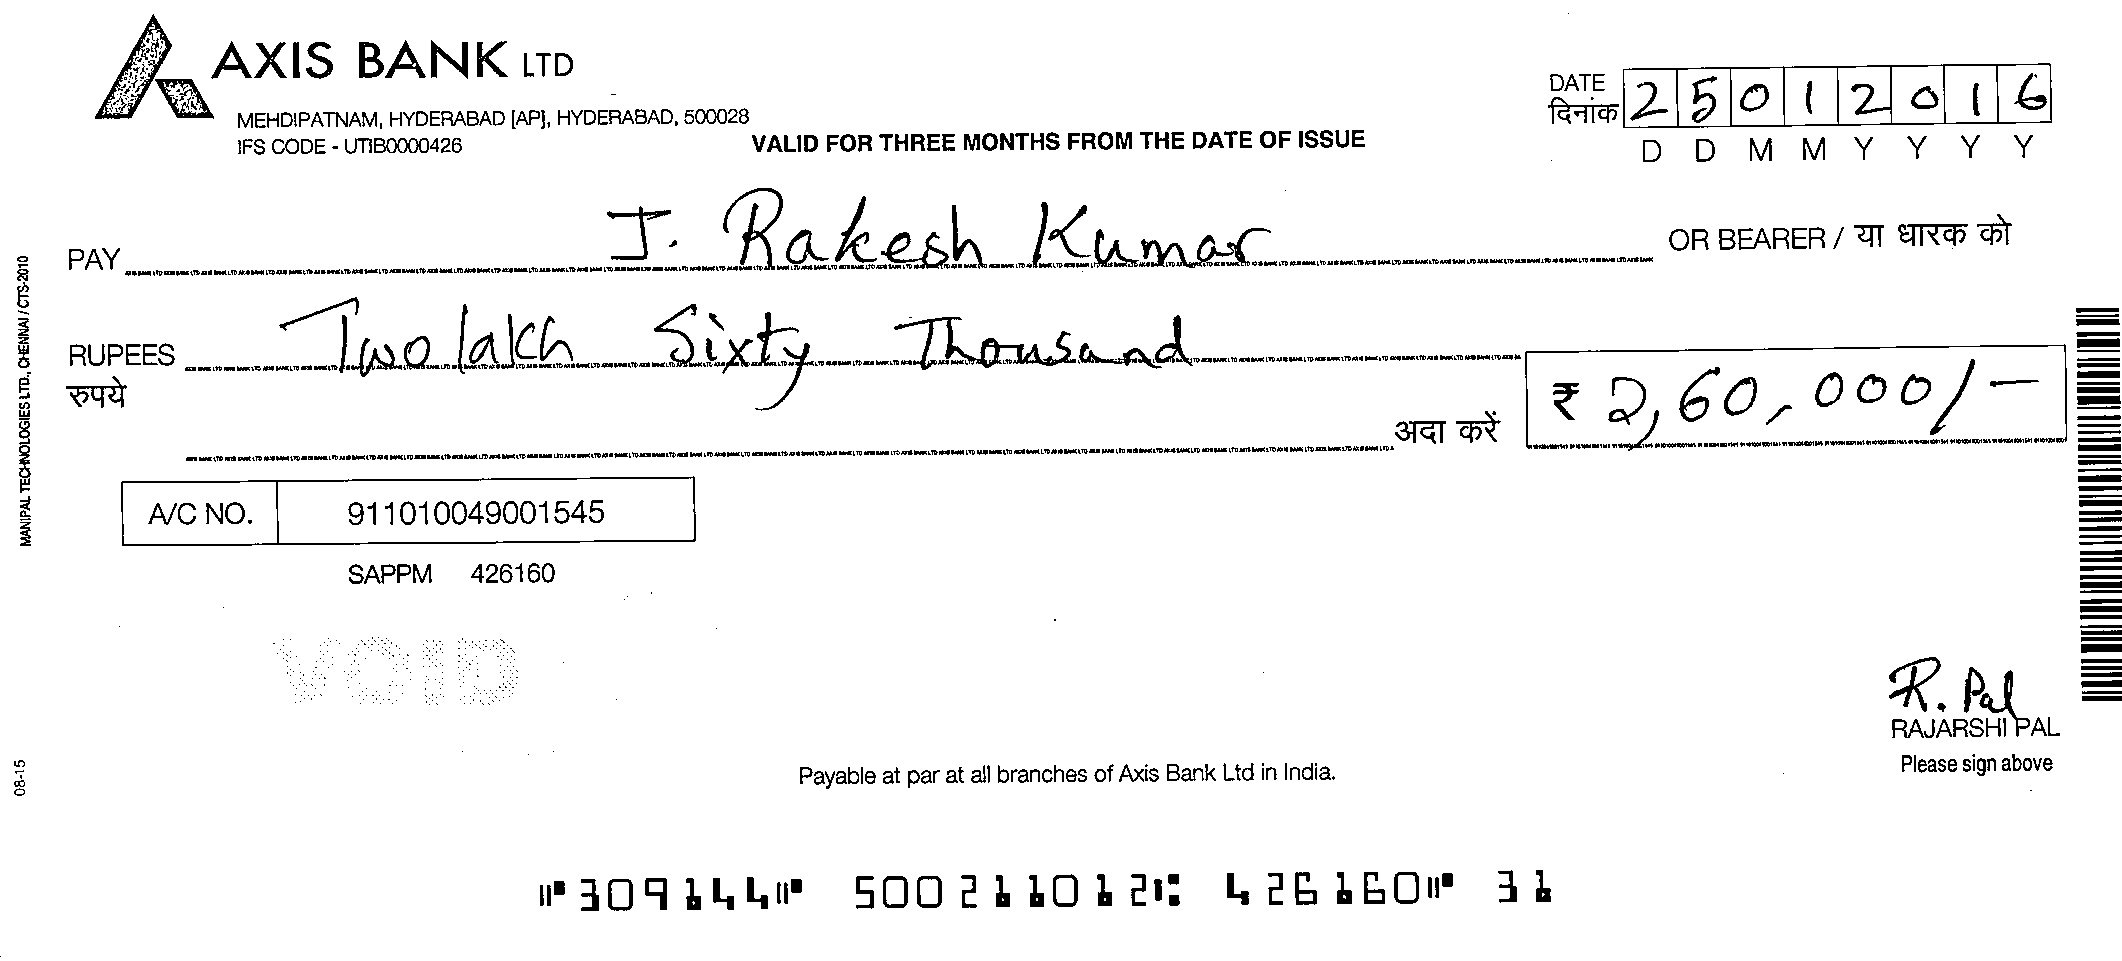 AXIS BANK LTD
MEHDIPATNAM, HYDERABAD [AP], HYDERABAD, 500028
IFS CODE - UTIB0000426
VALID FOR THREE MONTHS FROM THE DATE OF ISSUE
DATE
दिनांक 25012016
D D M M Y Y Y Y
PAY J. Rakesh Kumar OR BEARER / या धारक को
RUPEES Two lakh Sixty Thousand
रुपये
अदा करें ₹ 2,60,000/-
A/C NO. 911010049001545
SAPPM 426160
VOID
R. Pal
RAJARSHI PAL
Please sign above
Payable at par at all branches of Axis Bank Ltd in India.
⑈309144⑈ 500211012⑆ 426160⑈ 31
MANIPAL TECHNOLOGIES LTD., CHENNAI / CTS-2010
08-15